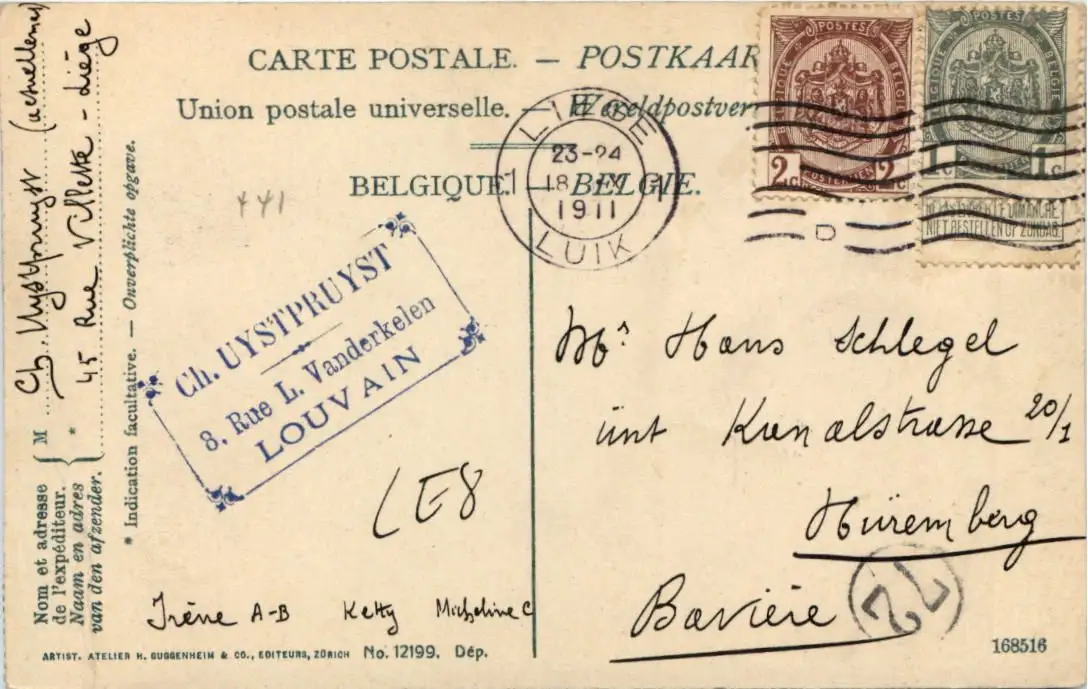 CARTE POSTALE. — POSTKAAR
Union postale universelle. — Wereldpostver
BELGIQUE. — BELGIE.
POSTES
BELGIQUE BELGIE
2c 2c
POSTERIJEN
POSTES
BELGIQUE BELGIE
1c 1c
NE PAS LIVRER LE DIMANCHE
NIET BESTELLEN OP ZONDAG
1 LIEGE 1
23-24
18 IX
1911
LUIK
D
441
Ch. UYSTPRUYST
8, Rue L. Vanderkelen
LOUVAIN
Mr. Hans Schlegel
unt Kanalstrasse 20/1
Nüremberg
Bavière
72
LE8
Irène A-B Ketty Micheline C
Nom et adresse
de l'expéditeur.
Naam en adres
van den afzender.
M Ch. Uystpruyst
* 45 Rue Villette - Liège
* Indication facultative. — Onverplichte opgave.
ARTIST. ATELIER H. GUGGENHEIM & CO., EDITEURS, ZÜRICH No. 12199. Dép.
168516